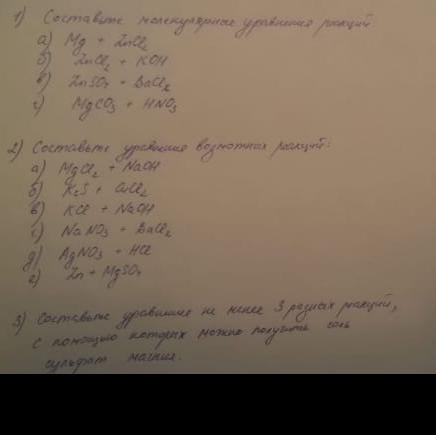 1) Составьте молекулярные уравнения реакций.
а) Mg + ZnCl₂
б) ZnCl₂ + KOH
в) ZnSO₄ + BaCl₂
г) MgCO₃ + HNO₃
2) Составьте уравнения возможных реакций:
а) MgCl₂ + NaOH
б) K₂S + CuCl₂
в) KCl + NaOH
г) NaNO₃ + BaCl₂
д) AgNO₃ + HCl
е) Zn + MgSO₄
3) Составьте уравнения не менее 3 разных реакций,
с помощью которых можно получить соль
сульфат магния.